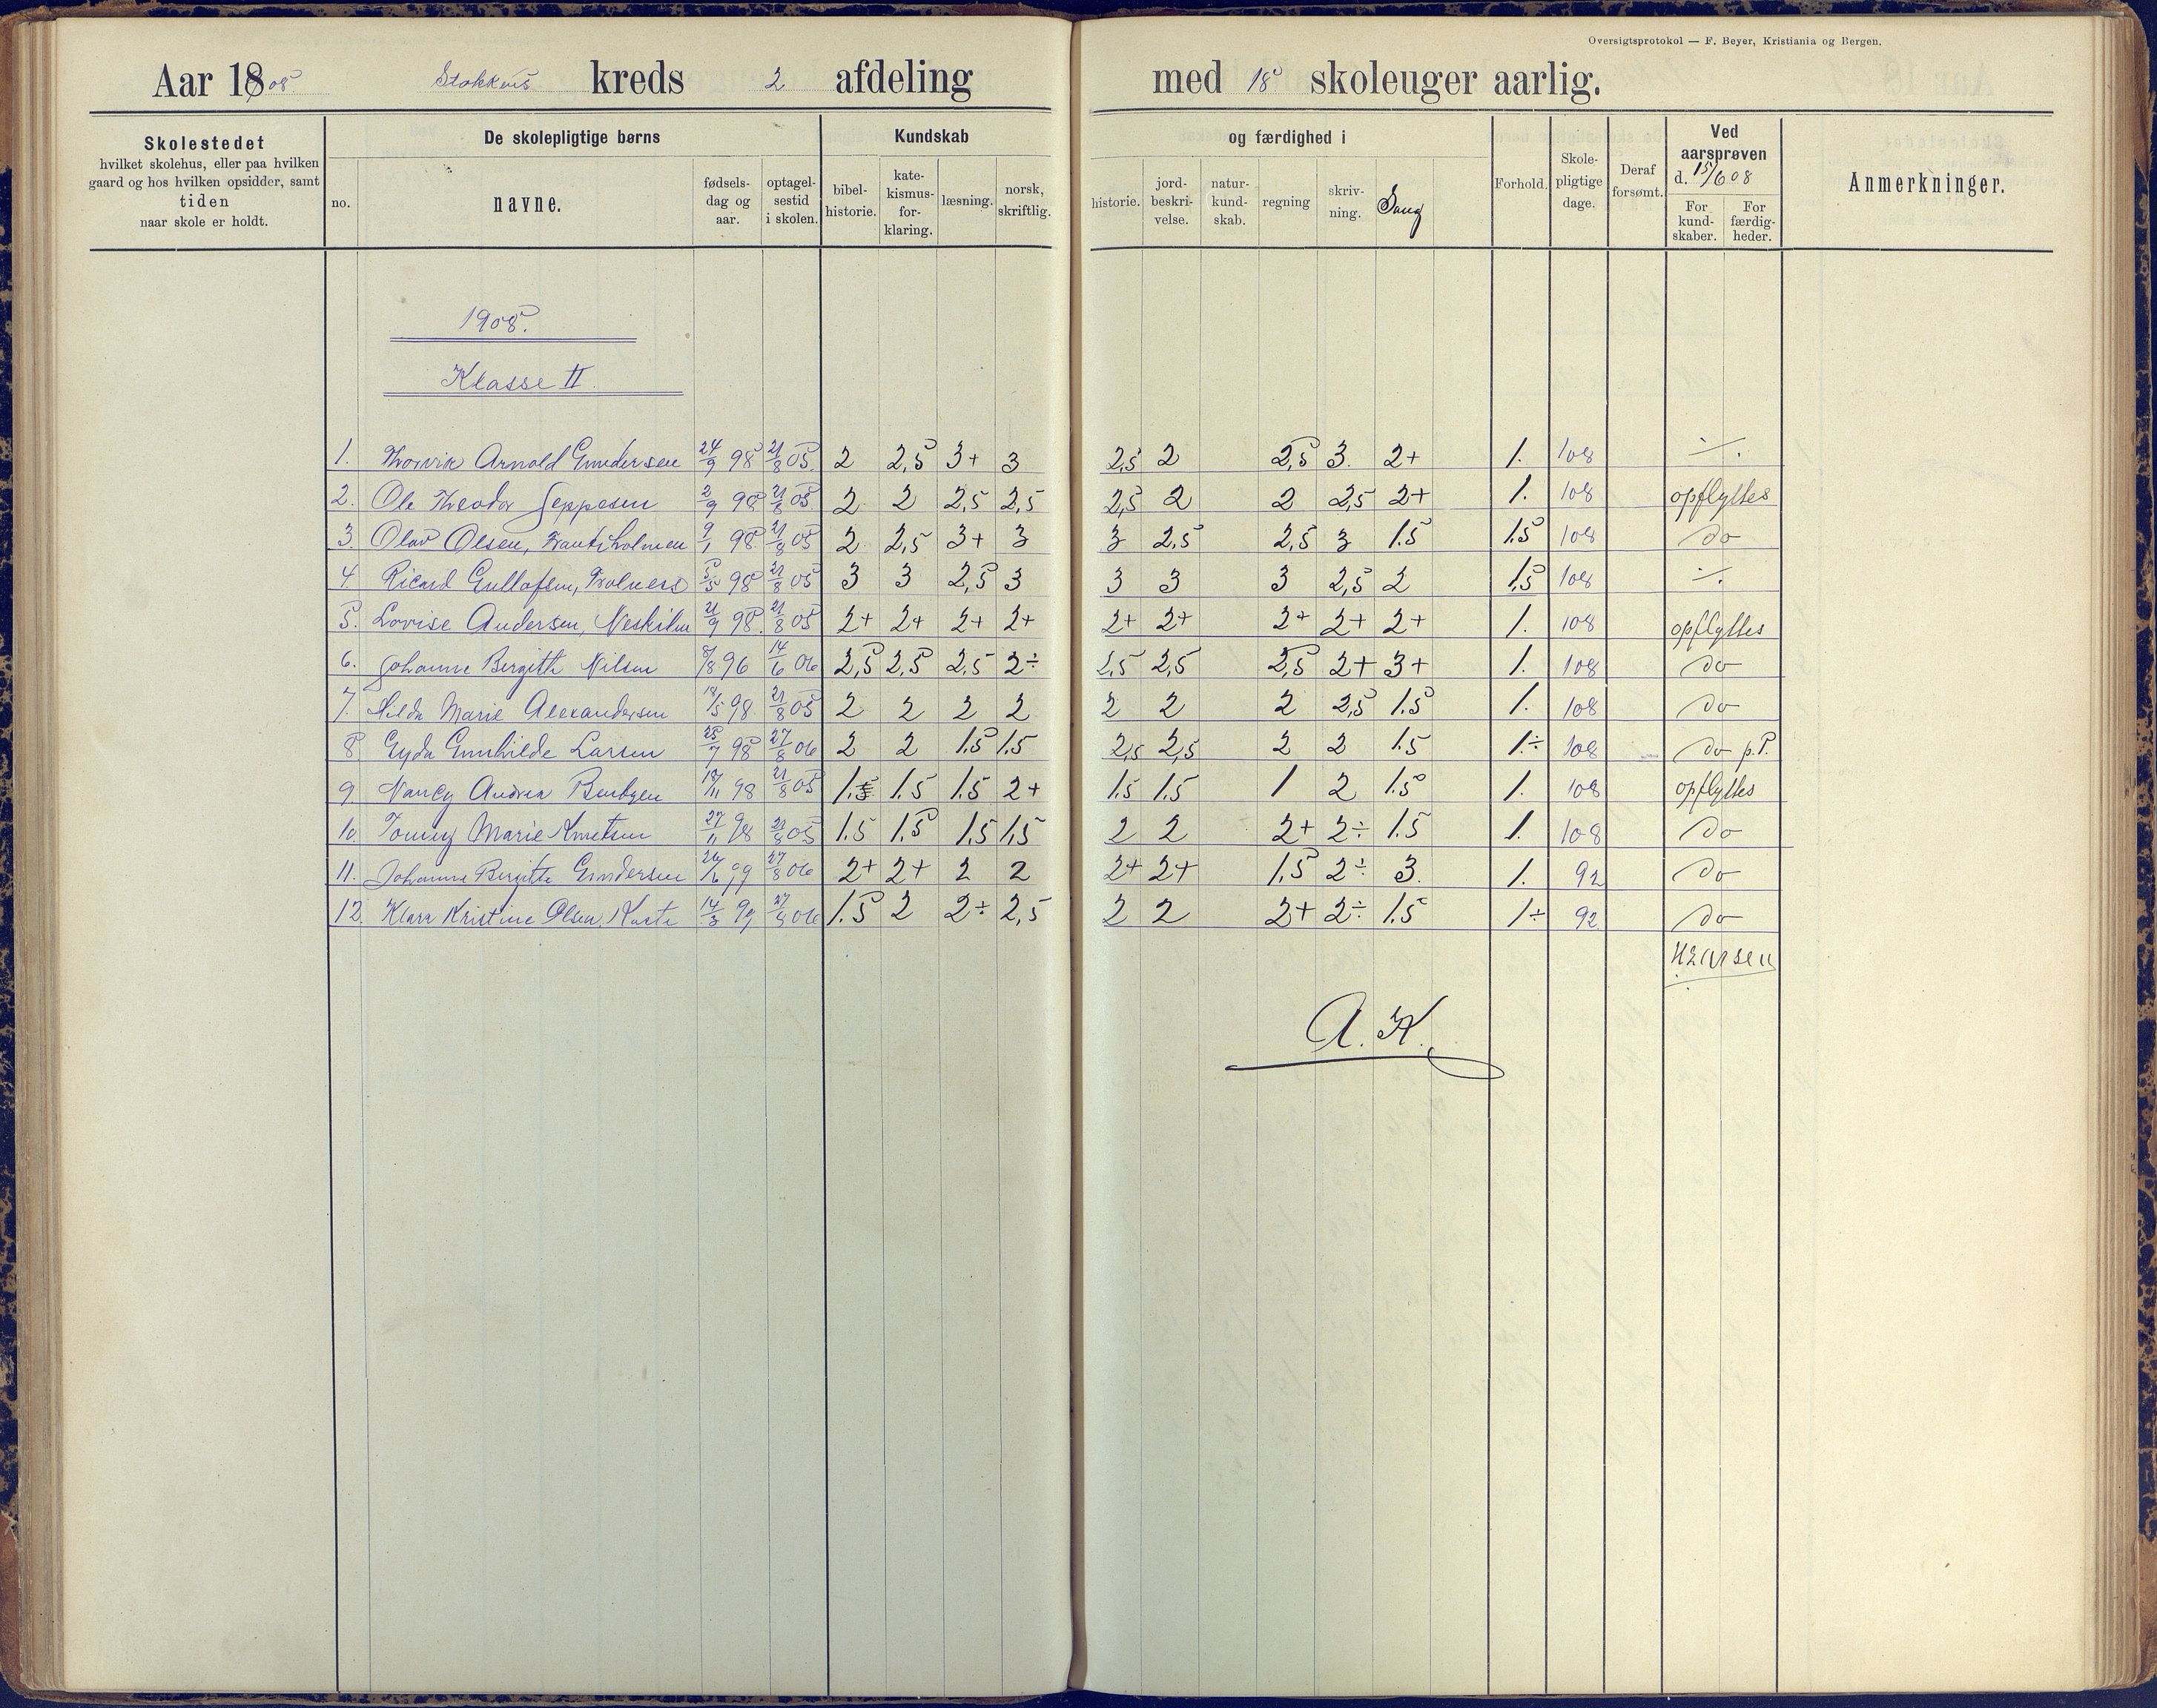 Oversigtsprotokol — F. Beyer, Kristiania og Bergen.
Aar 1908 Stokkens kreds 2 afdeling med 18 skoleuger aarlig.
Skolestedet hvilket skolehus, eller paa hvilken gaard og hos hvilken opsidder, samt tiden naar skole er holdt.
De skolepligtige børns
no. navne. fødsels-dag og aar. optagel-sestid i skolen.
Kundskab og færdighed i
bibel-historie. kate-kismus-for-klaring. læsning. norsk, skriftlig. historie. jord-beskri-velse. natur-kund-skab. regning skriv-ning. Sang
Forhold. Skole-pligtige dage. Deraf forsømt.
Ved aarsprøven d. 15/6 08
For kund-skaber. For færdig-heder.
Anmerkninger.
1908.
Klasse II.
1. Thorvik Arnold Gundersen 24/9 98 21/8 05. 2 2,5 3+ 3 2,5 2 2,5 3. 2+ 1. 108 ./.
2. Ole Theodor Jeppesen 2/9 98 21/8 05. 2 2 2,5 2,5 2,5 2 2 2,5 2+ 1. 108 opflyttes
3. Olav Olsen, 9/1 98 21/8 05 2 2,5 3+ 3 3 2,5 2,5 3 1.5 1.5 108 do
4. Ricard Gullofsen, 5/5 98 21/8 05 3 3 2,5 3 3 3 3 2,5 2 1,5 108 ./.
5. Lovise Andersen, 21/9 98. 21/8 05 2+ 2+ 2+ 2+ 2+ 2+ 2+ 2+ 2+ 1. 108 opflyttes
6. Johanne Bergitte Nilsen 8/8 96 14/6 06 2,5 2,5 2,5 2÷ 2,5 2,5 2,5 2+ 3+ 1. 108 do
7. Hilda Marie Alexandersen 98 21/8 05 2 2 2 2 2 2 2 2,5 1.5 1. 108 do
8 Gyda Gunhilde Larsen 25/7 98 27/8 06 2 2 1.5 1.5 2,5 2,5 2 2 1.5 1.÷ 108 do p.P.
9. Nancy Andrea Bentzen 18/11 98 21/8 05 1.5 1.5 1.5 2+ 1.5 1.5 1 2 1.5 1. 108 opflyttes
10. Tomny Marie Knutsen 27/11 98 21/8 05 1.5 1.5 1.5 1,5 2 2 2+ 2÷ 1.5 1. 108 do
11. Johanne Bergitte Gundersen 99 27/8 06 2+ 2+ 2 2 2+ 2+ 1.5 2÷ 3. 1. 92 do
12. Klara Kristine Olsen, 14/3 99 06 1.5 2 2÷ 2,5 2 2 2+ 2÷ 1.5 1÷ 92 do
HLarsen
A. K.